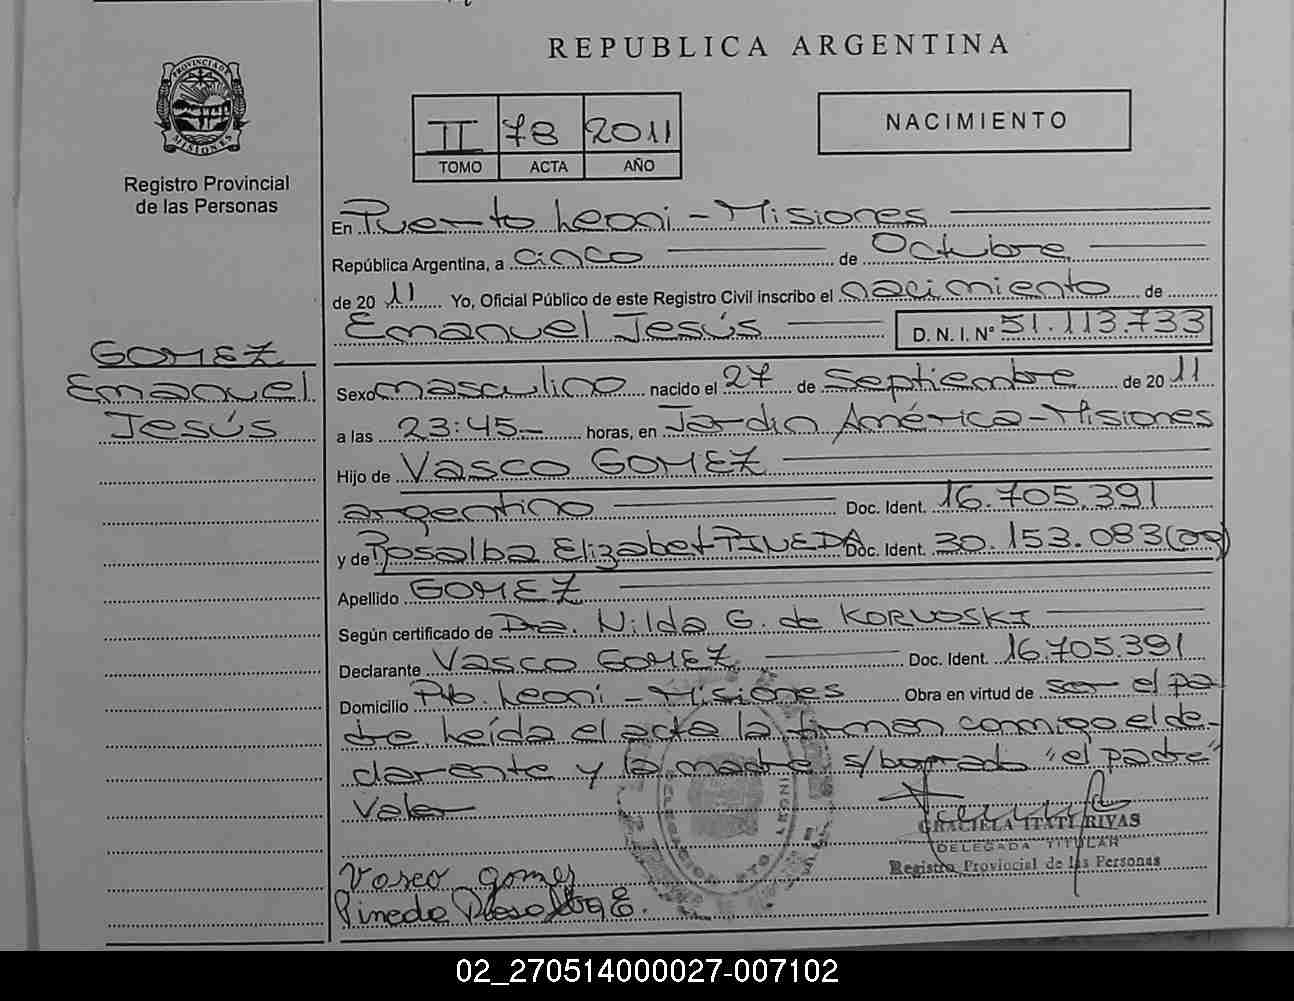 REPUBLICA ARGENTINA
PROVINCIA DE
MISIONES
Registro Provincial
de las Personas
II 78 2011
TOMO ACTA AÑO
NACIMIENTO
En Puerto Leoni - Misiones
República Argentina, a cinco de Octubre
de 20 11 Yo, Oficial Público de este Registro Civil inscribo el nacimiento de
Emanuel Jesús D. N. I. Nº 51.113.733
GOMEZ
Emanuel
Jesús
Sexo masculino nacido el 27 de Septiembre de 20 11
a las 23:45 horas, en Jardin América - Misiones
Hijo de Vasco GOMEZ
argentino Doc. Ident. 16.705.391
y de Rosalba Elizabet PINEDA Doc. Ident. 30.153.083 (arg)
Apellido GOMEZ
Según certificado de Dra. Nilda G. de KORUOSKI
Declarante Vasco GOMEZ Doc. Ident. 16.705.391
Domicilio Pto. Leoni - Misiones Obra en virtud de ser el pa
dre. Leída el acta la firman conmigo el de-
clarente y la madre s/borrado "el padre"
Valer
GRACIELA ITATI RIVAS
DELEGADA TITULAR
Registro Provincial de las Personas
Vasco gomez
Pineda Rosalba E.
02_270514000027-007102